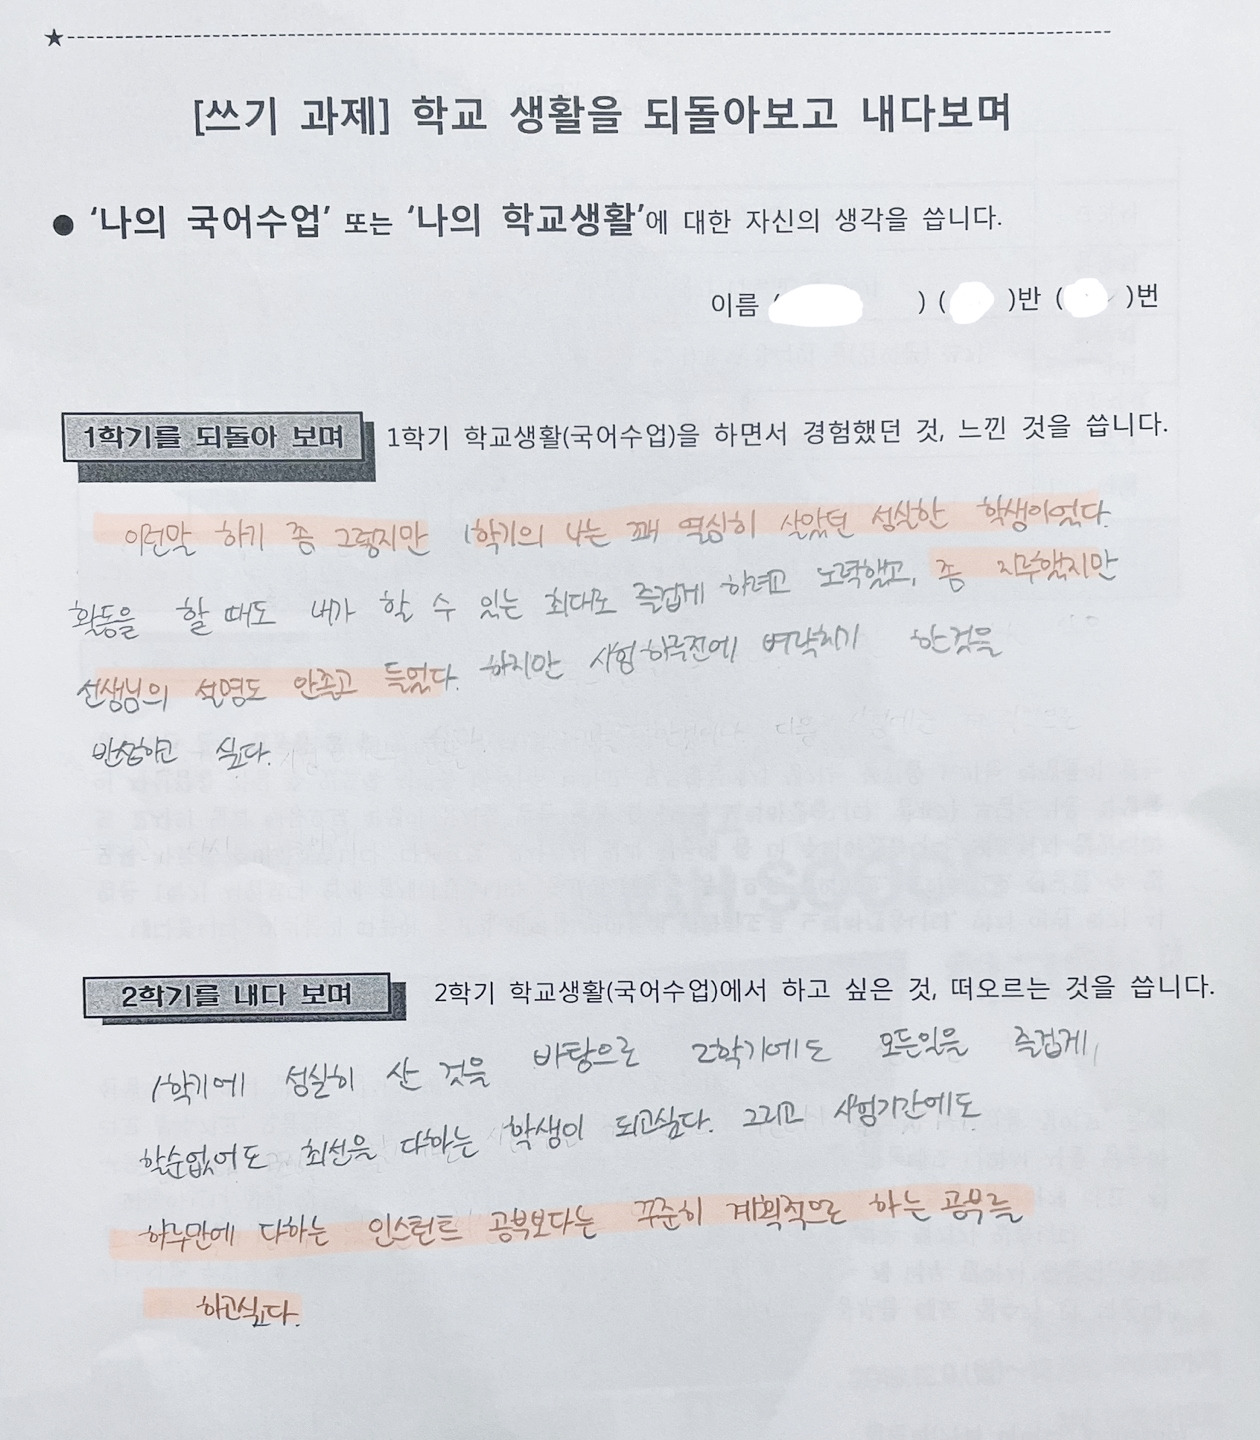 ★
[쓰기 과제] 학교 생활을 되돌아보고 내다보며
● ‘나의 국어수업’ 또는 ‘나의 학교생활’에 대한 자신의 생각을 씁니다.
이름 ( ) ( )반 ( )번
1학기를 되돌아 보며 1학기 학교생활(국어수업)을 하면서 경험했던 것, 느낀 것을 씁니다.
이런말 하기 좀 그렇지만 1학기의 나는 꽤 열심히 살았던 성실한 학생이었다.
활동을 할 때도 내가 할 수 있는 최대로 즐겁게 하려고 노력했고, 좀 지루했지만
선생님의 설명도 안졸고 들었다. 하지만 시험하루전에 벼락치기 한것을
반성하고 싶다.
2학기를 내다 보며 2학기 학교생활(국어수업)에서 하고 싶은 것, 떠오르는 것을 씁니다.
1학기에 성실히 산 것을 바탕으로 2학기에도 모든일을 즐겁게,
할순없어도 최선을 다하는 학생이 되고싶다. 그리고 시험기간에도
하루만에 다하는 인스턴트 공부보다는 꾸준히 계획적으로 하는 공부를
하고싶다.